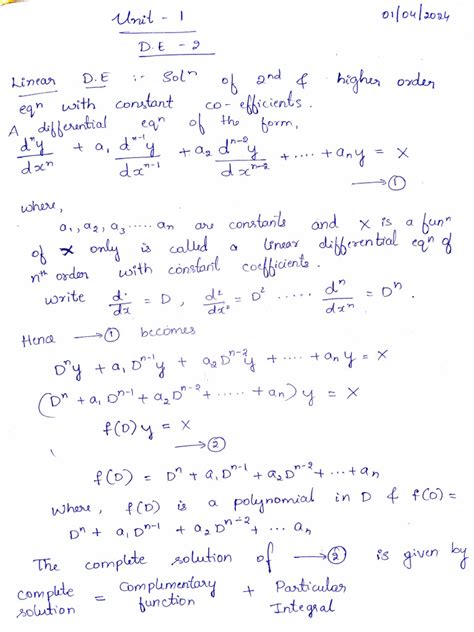 Unit - 1
01/04/2024
D.E - 2
Linear D.E :- Solⁿ of 2nd & higher order
eqⁿ with constant co-efficients.
A differential eqⁿ of the form,
dⁿy/dxⁿ + a₁ dⁿ⁻¹y/dxⁿ⁻¹ + a₂ dⁿ⁻²y/dxⁿ⁻² + ..... + aₙy = X
→ ①
where,
a₁, a₂, a₃ ..... aₙ are constants and X is a funⁿ
of x only is called a linear differential eqⁿ of
nᵗʰ order with constant coefficients.
write d/dx = D, d²/dx² = D² ..... dⁿ/dxⁿ = Dⁿ.
Hence → ① becomes
Dⁿy + a₁Dⁿ⁻¹y + a₂Dⁿ⁻²y + .... + aₙy = X
(Dⁿ + a₁Dⁿ⁻¹ + a₂Dⁿ⁻² + ..... + aₙ) y = X
f(D) y = X
→ ②
f(D) = Dⁿ + a₁Dⁿ⁻¹ + a₂Dⁿ⁻² + ... + aₙ
Where, f(D) is a polynomial in D & f(D) =
Dⁿ + a₁Dⁿ⁻¹ + a₂Dⁿ⁻² + ... aₙ
The complete solution of → ② is given by
complete solution = Complimentary function + Particular Integral